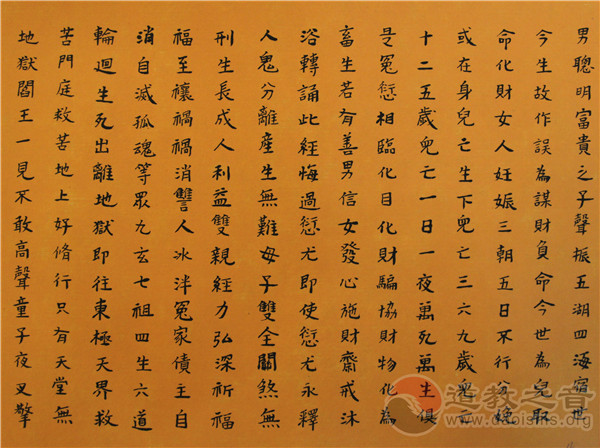 男聰明富貴之子聲振五湖四海宿世
今生故作誤為謀財負命今世為兒取
命化財女人妊娠三朝五日不行分娩
或在身兒亡生下兒亡三六九歲兒亡
十二五歲兒亡一日一夜萬死萬生俱
是冤愆相臨化目化財騙協財物化為
畜生若有善男信女發心施財齋戒沐
浴轉誦此經悔過愆尤即使愆尤永釋
人鬼分離產生無難母子雙全關煞無
刑生長成人利益雙親經力弘深祈福
福至禳禍禍消讐人冰泮冤家債主自
消自滅孤魂等眾九玄七祖四生六道
輪迴生死出離地獄即往東極天界救
苦門庭救苦地上好脩行只有天堂無
地獄閻王一見不敢高聲童子夜叉擎
道教之音
www.daoisms.org